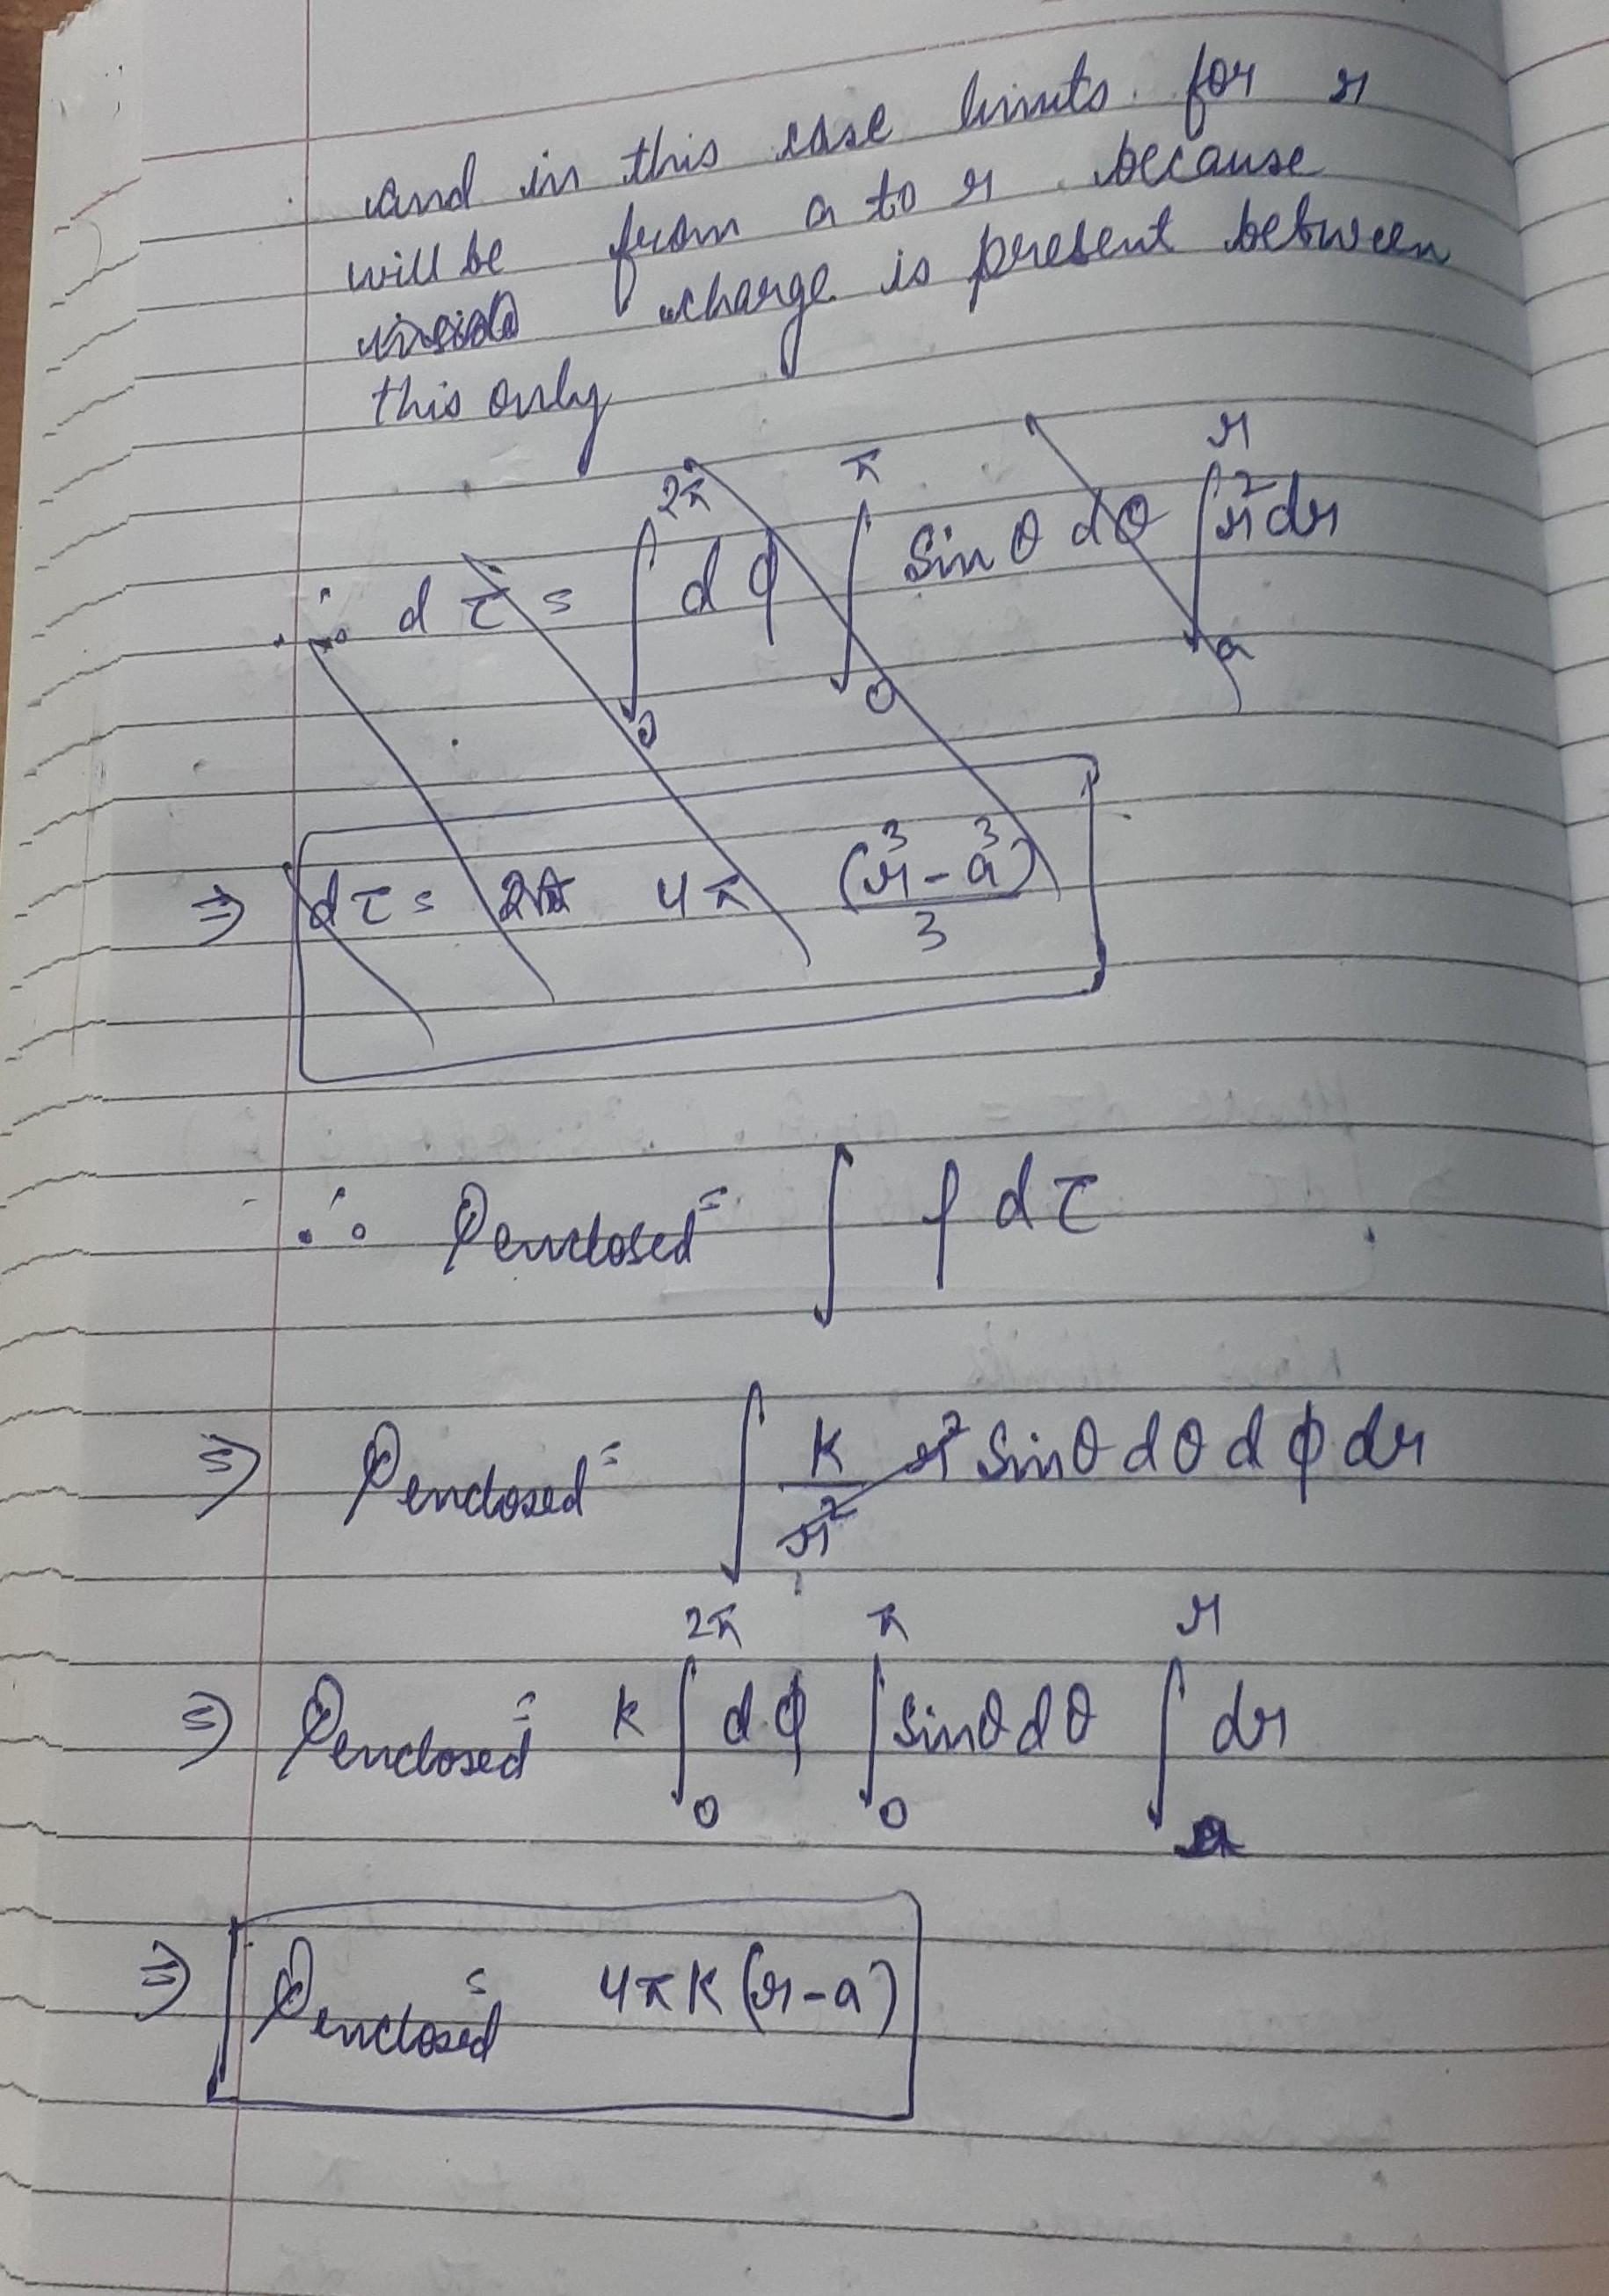 and in this case limits for r
will be from a to r because
charge is present between
this only
∴ dτ = ∫₀^2π dϕ ∫₀^π Sinθ dθ ∫ₐ^r r² dr
⇒ dτ = 4π (r³ - a³)/3
∴ Qenclosed = ∫ ρ dτ
⇒ Qenclosed = ∫ K/r² r² Sinθ dθ dϕ dr
⇒ Qenclosed = k ∫₀^2π dϕ ∫₀^π sinθ dθ ∫ₐ^r dr
⇒ Qenclosed = 4πK(r-a)